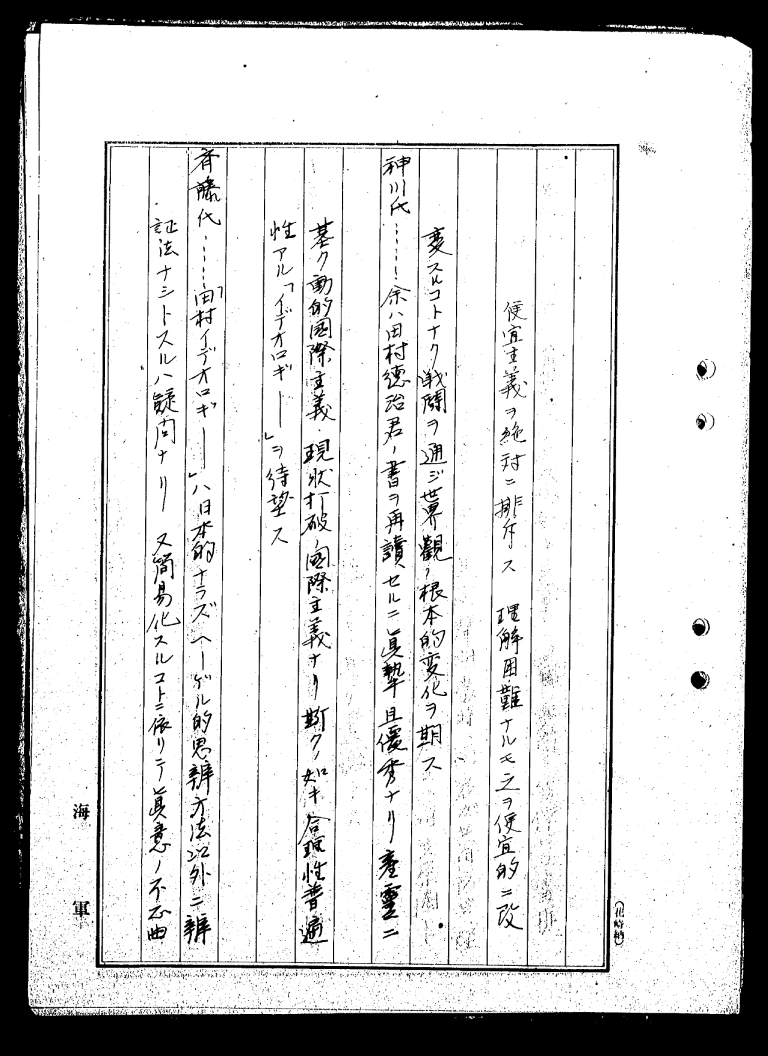 便宜主義ヲ絶対ニ排斥ス 理解困難ナルモ之ヲ便宜的ニ改
変スルコトナク戦闘ヲ通ジ世界観ノ根本的変化ヲ期ス
神川氏……余ハ田村徳治君ノ書ヲ再読セルニ真摯且優秀ナリ産霊ニ
基ク動的國際主義、現状打破ノ國際主義ナリ斯クノ如キ合理性普遍
性アル「イデオロギー」ヲ待望ス
斉藤氏……「田村イデオロギー」ハ日本的ナラズヘーゲル的思辨方法以外ニ辨
証法ナシトスルハ疑问ナリ 又簡易化スルコトニ依リテ真意ノ不正曲
海軍
(花崎納)